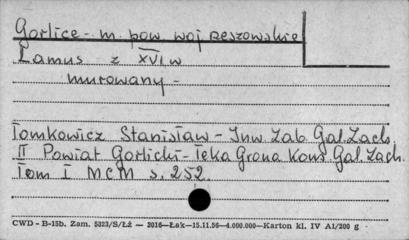 Gorlice - m. pow. woj rzeszowskie
Lamus z XVI w
murowany -
Tomkowicz Stanisław - Inw. Zab. Gal. Zach.
II Powiat Gorlicki - Teka Grona Kons. Gal. Zach.
Tom I MCM s. 252.
CWD - B-15b. Zam. 5323/S/Łź — 2016—Łak—15.11.56—4.000.000—Karton kl. IV A1/200 g